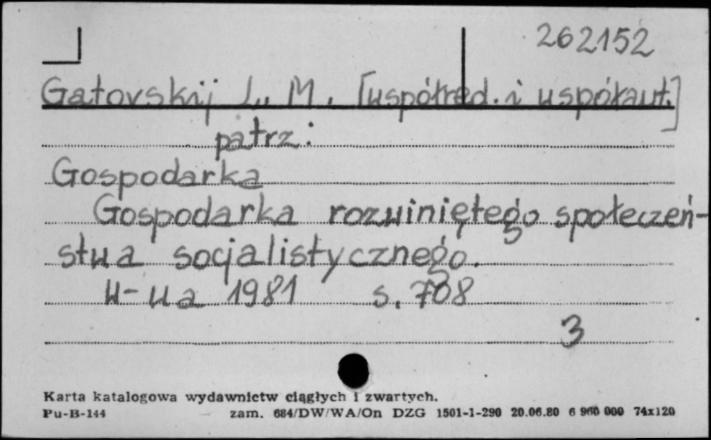 262152
Gatovskij L. M. [współred. i współaut.]
patrz:
Gospodarka
Gospodarka rozwiniętego społeczeń-
stwa socjalistycznego.
W-wa 1981 s. 708
3
Karta katalogowa wydawnictw ciągłych i zwartych.
Pu-B-144 zam. 684/DW/WA/On DZG 1501-1-290 20.06.80 6 960 000 74x120